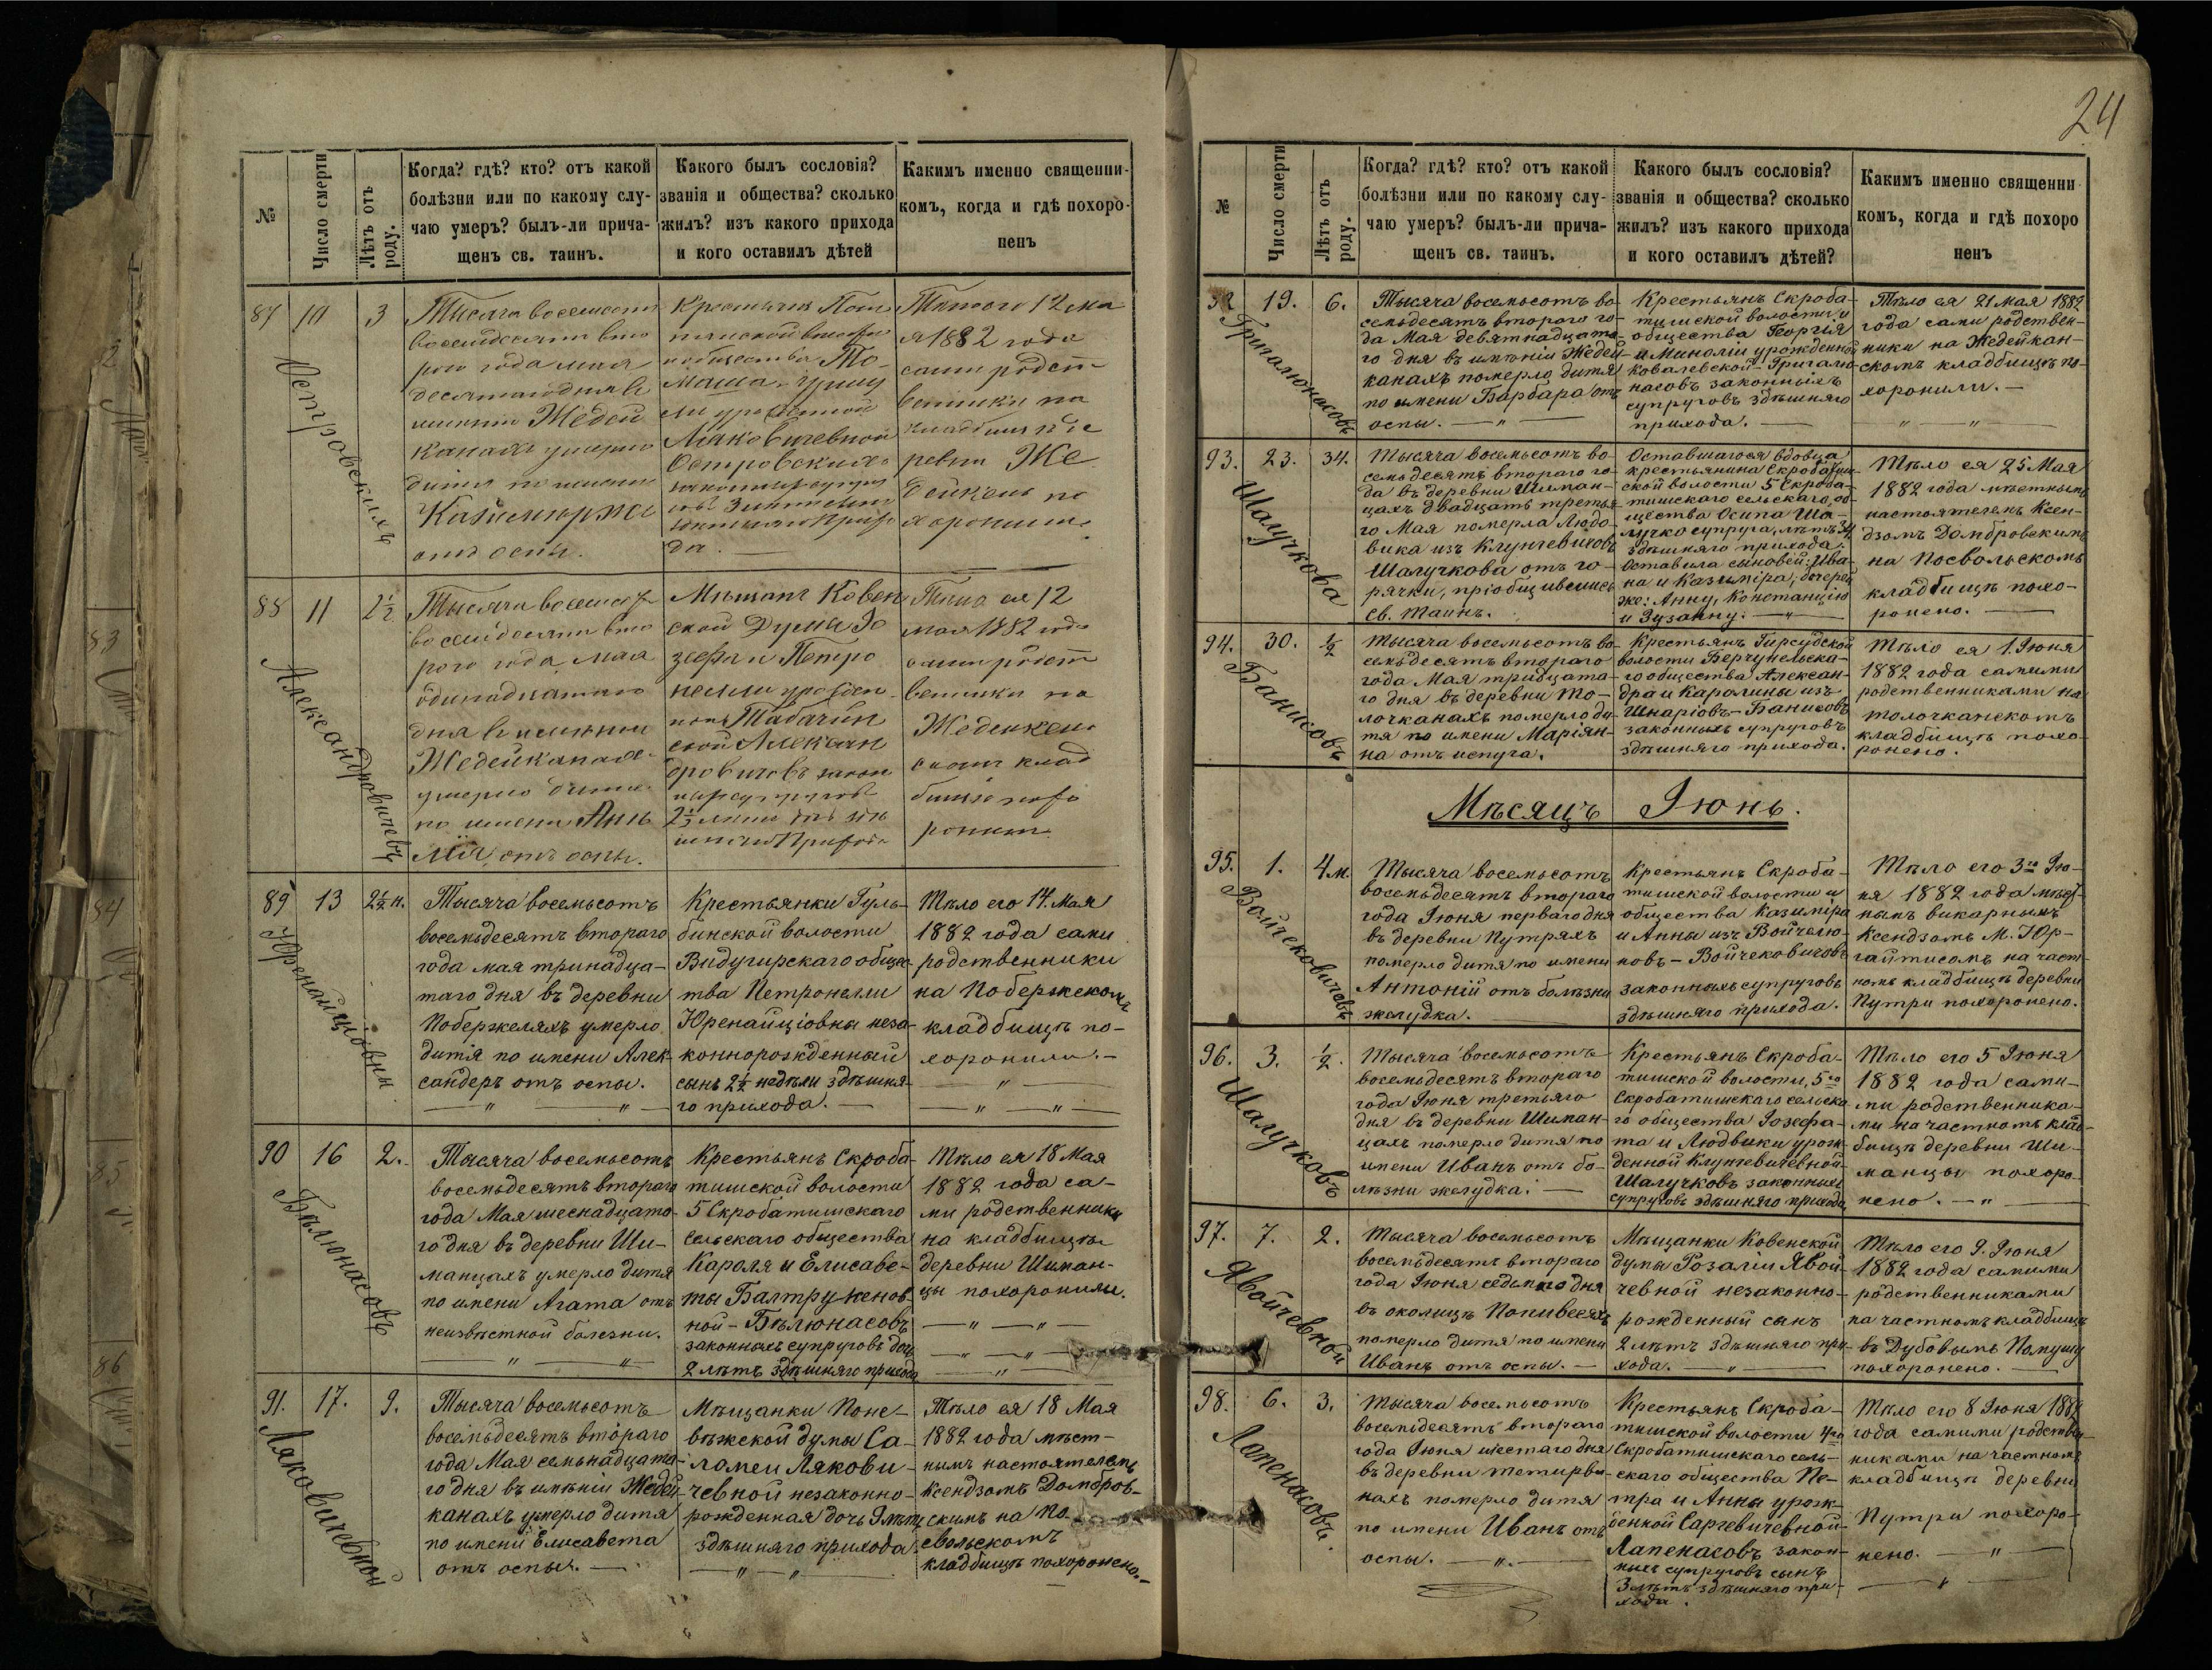 24
№
Число смерти
Лѣтъ отъ роду.
Когда? гдѣ? кто? отъ какой
болѣзни или по какому слу-
чаю умеръ? былъ-ли прича-
щенъ св. таинъ.
Какого былъ сословія?
званія и общества? сколько
жилъ? изъ какого прихода
и кого оставилъ дѣтей
Какимъ именно священни-
комъ, когда и гдѣ похоро-
ненъ
87
10
3
Островскихъ
Тысяча восемьсот
восемьдесятъ вто
рого года мая
десятого дня въ
имѣніи Жедей
канахъ умерло
дитя по имени
отъ оспы.
Крестьянъ
общества То-
маша
Маковичевной
Островскихъ
да.
Тѣло 12 ма
я 1882 года
сами родст-
венники на
кладбищѣ де
ревни Же
дейканъ по
хоронили
88
11
2½
Александровичевъ
Тысяча восемьсот
восемьдесятъ вто
рого года, Мая
одинадцатого
дня въ имѣніи
Жедейканахъ
умерло дитя
по имени
отъ оспы.
Мѣщанъ Ковен
ской Думы Іо
зефа и Петро
нелли урожден
ной
Алексан
дровичевъ закон
Тѣло ея 12
мая 1882 года
сами родст
венники на
Жедейкан
скомъ клад
бищѣ похо
ронили
89
13
2½ н.
Юренайціовны
Тысяча восемьсотъ
восемьдесятъ втораго
года мая тринадца-
таго дня въ деревни
Побержеляхъ умерло
дитя по имени Алек-
сандеръ отъ оспы.
Крестьянки Гуль-
бинской волости
Видугирскаго общес-
тва Петронелли
Юренайціовны неза-
коннорожденный
сынъ 2½ недѣли здѣшня-
го прихода.
Тѣло его 14. Мая
1882 года сами
родственники
на Побержескомъ
кладбищѣ по-
хоронили.
90
16
2.
Бѣлюнасовъ
Тысяча восемьсотъ
восемьдесятъ втораго
года Мая шеснадцато-
го дня въ деревни Ши-
манцахъ умерло дитя
по имени Агата отъ
неизвѣстной болезни.
Крестьянъ Скроба-
тишской волости
5 Скробатишскаго
сельскаго общества
Кароля и Елисаве-
ты Балтрунеnов-
ной - Бѣлюнасовъ
законныхъ супруговъ дочь
2 лѣтъ здѣшняго прихода
Тѣло ея 18 Мая
1882 года са-
ми родственники
на кладбищѣ
деревни Шиман-
цы похоронили.
91.
17.
9.
Ляковичевной
Тысяча восемьсотъ
восемьдесятъ втораго
года Мая семьнадцато-
го дня въ имѣніи Жедей-
канахъ умерло дитя
по имени Елисавета
отъ оспы.
Мѣщанки Поне-
вѣжской думы Са-
ломеи Лякови-
чевной незаконно-
рожденная дочь 9 лѣтъ
здѣшняго прихода.
Тѣло ея 18 Мая
1882 года мѣст-
нымъ настоятелемъ
Ксендзомъ Домбров-
скимъ на По-
свольскомъ
кладбищѣ похоронено.
№
Число смерти
Лѣтъ отъ роду.
Когда? гдѣ? кто? отъ какой
болѣзни или по какому слу-
чаю умеръ? былъ-ли прича-
щенъ св. таинъ.
Какого былъ сословія?
званія и общества? сколько
жилъ? изъ какого прихода
и кого оставилъ дѣтей?
Какимъ именно священни
комъ, когда и гдѣ похоро
ненъ
92
19.
6.
Григалюнасовъ
Тысяча восемьсотъ во-
семьдесятъ второго го-
да Мая девятнадцато-
го дня въ имѣніи Жедей-
канахъ померло дитя
по имени Барбара отъ
оспы.
Крестьянъ Скроба-
тишской волости и
общества Георгія
и урожденной
Ковалевской - Григалю-
насовъ законныхъ
супруговъ здѣшняго
прихода.
Тѣло ея 21 мая 1882
года сами родствен-
ники на Жедейкан-
скомъ кладбищѣ по-
хоронили.
93.
23.
34.
Шалучкова
Тысяча восемьсотъ во-
семьдесятъ втораго го-
да въ деревни Шиман-
цахъ двадцать третья-
го Мая померла Людо-
вика изъ Клунгевичовъ
Шалучкова отъ го-
рячки, пріобщившись
Св. Таинъ.
Оставшагося вдовца
крестьянина Скробатиш-
ской волости 5 Скроба-
тишскаго сельскаго об-
щества Осипа Ша-
лучко супруга, лѣтъ 34
здѣшняго прихода.
Оставила сыновей: Ива-
на и Казиміра, дочерей
же: Анну, Констанцію
и Зузанну.
Тѣло ея 25 Мая
1882 года мѣстнымъ
настоятелемъ Ксен-
дзомъ Домбровскимъ
на Посвольскомъ
кладбищѣ похо-
ронено.
94.
30.
½
Банисовъ
Тысяча восемьсотъ во-
семьдесятъ втораго
года Мая тридцата-
го дня въ деревни То-
лочканахъ померло ди-
тя по имени Маріян-
на отъ испуга.
Крестьянъ Гирсудской
волости
го общества Алексан-
дра и Каролины изъ
Шнаріовъ - Банисовъ
законныхъ супруговъ
здѣшняго прихода.
Тѣло ея 1. Іюня
1882 года самими
родственниками на
толочканскомъ
кладбищѣ похо-
ронено.
Мѣсяцъ Іюнь.
95.
1.
4 м.
Войчековичевъ
Тысяча восемьсотъ
восемьдесятъ втораго
года Іюня перваго дня
въ деревни Путряхъ
померло дитя по имени
Антоній отъ болѣзни
желудка.
Крестьянъ Скроба-
тишской волости и
общества Казиміра
и Анны изъ Войчелю-
новъ - Войчековичовъ
законныхъ супруговъ
здѣшняго прихода.
Тѣло его 3го Ію-
ня 1882 года мѣст-
нымъ викарнымъ
Ксендзомъ М. Юр-
гайтисомъ на част-
номъ кладбищѣ деревни
Путри похоронено.
96.
3.
½.
Шалучковъ
Тысяча восемьсотъ
восемьдесятъ втораго
года Іюня третьяго
дня въ деревни Шиман-
цахъ померло дитя по
имени Иванъ отъ бо-
лѣзни желудка.
Крестьянъ Скроба-
тишской волости, 5го
Скробатишскаго сельска-
го общества Іозефа-
та и Людвики урож-
денной Клунгевичевной-
Шалучковъ законныхъ
супруговъ здѣшняго прихода
Тѣло его 5 Іюня
1882 года сами-
ми родственника-
ми на частномъ клад-
бищѣ деревни Ши-
манцы похоро-
нено.
97.
7.
2.
Явойчевной
Тысяча восемьсотъ
восемьдесятъ втораго
года Іюня седьмаго дня
въ околицѣ Попивесяхъ
померло дитя по имени
Иванъ отъ оспы.
Мѣщанки Ковенской
думы Розаліи Явой-
чевной незаконно-
рожденный сынъ
2 лѣтъ здѣшняго при-
хода.
Тѣло его 9. Іюня
1882 года самими
родственниками
на частномъ кладбищѣ
въ Дубовымъ Попушу
похоронено.
98.
6.
3.
Лапенасовъ.
Тысяча восемьсотъ
восемьдесятъ втораго
года Іюня шестаго дня
въ деревни Тетирви-
нахъ померло дитя
по имени Иванъ отъ
оспы.
Крестьянъ Скроба-
тишской волости 4го
Скробатишскаго сель-
скаго общества Пе-
тра и Анны урож-
денной Саргевичевной-
Лапенасовъ закон-
ныхъ супруговъ сынъ
3 лѣтъ здѣшняго при-
хода.
Тѣло его 8 Іюня 1882
года самими родствен-
никами на частномъ
кладбищѣ деревни
Путри похоро-
нено.